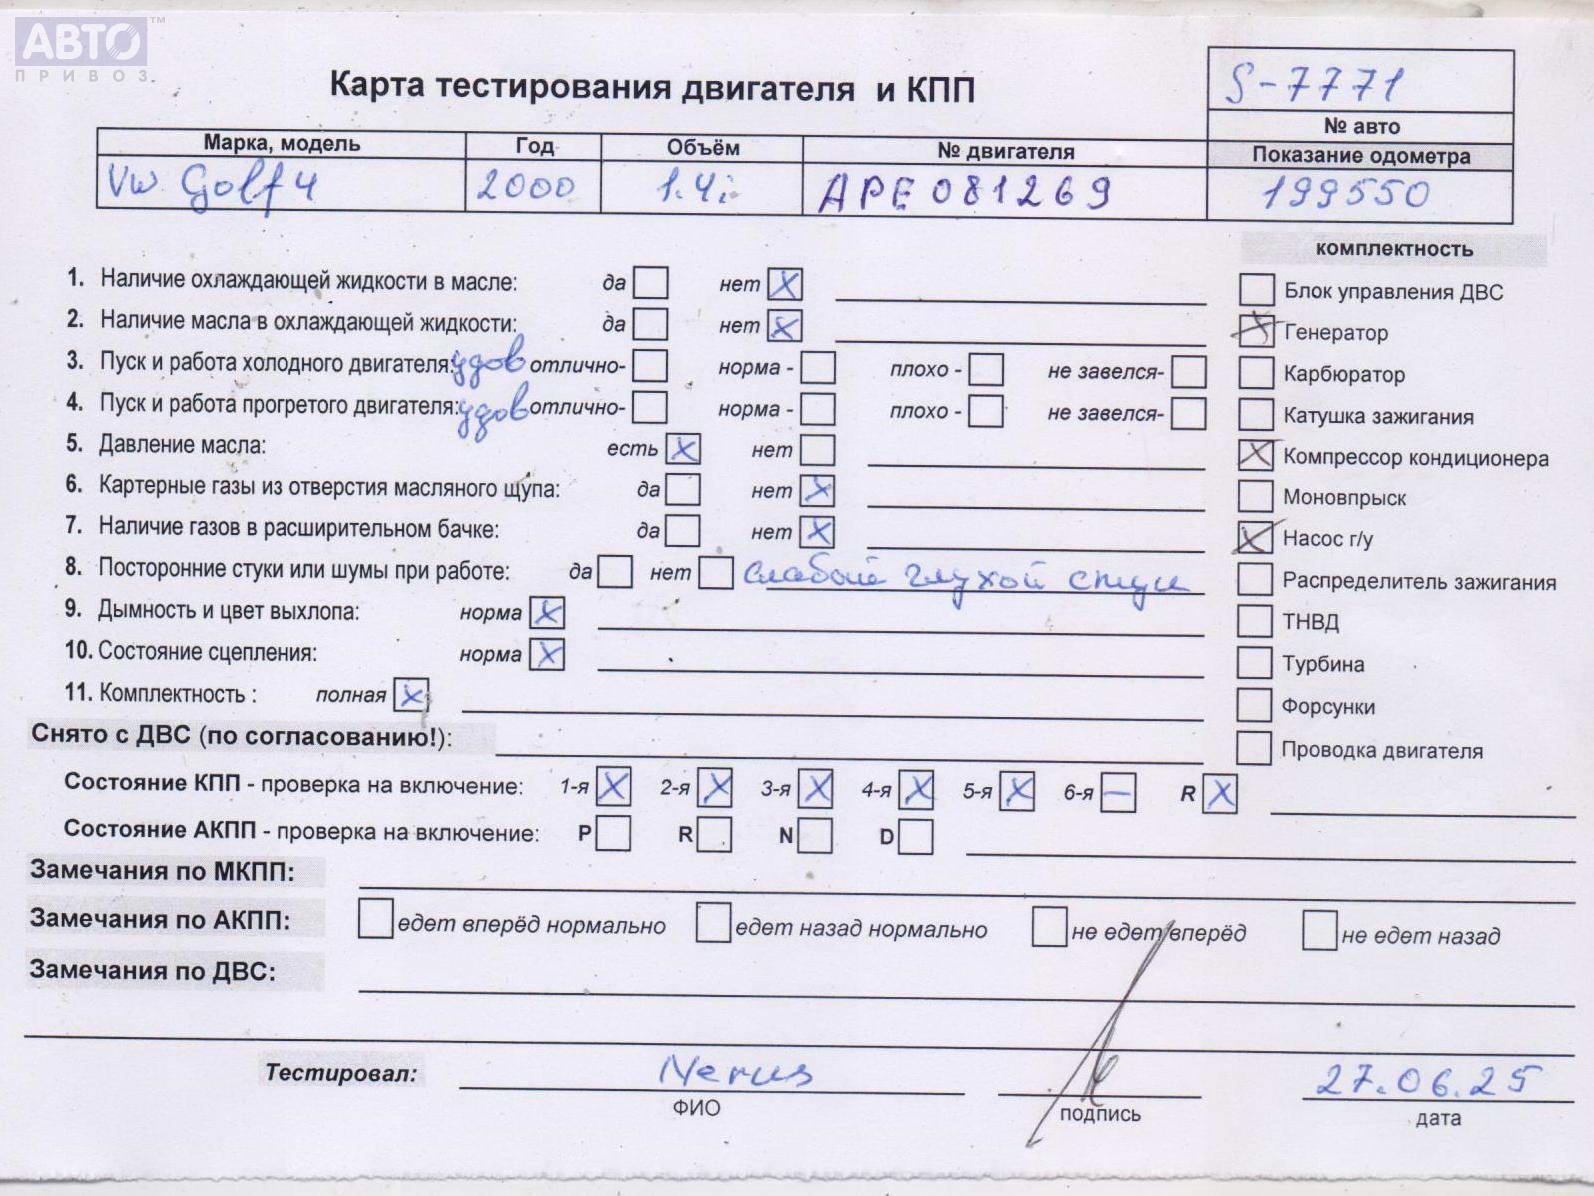 АВТО™
ПРИВОЗ
Карта тестирования двигателя и КПП
S-7771
№ авто
Марка, модель Год Объём № двигателя Показание одометра
VW Golf 4 2000 1.4i APE 081269 199550
комплектность
1. Наличие охлаждающей жидкости в масле: да нет X
Блок управления ДВС
2. Наличие масла в охлаждающей жидкости: да нет X
X Генератор
3. Пуск и работа холодного двигателя: удов отлично- норма - плохо - не завелся-
Карбюратор
4. Пуск и работа прогретого двигателя: удов отлично- норма - плохо - не завелся-
Катушка зажигания
5. Давление масла: есть X нет
X Компрессор кондиционера
6. Картерные газы из отверстия масляного щупа: да нет X
Моновпрыск
7. Наличие газов в расширительном бачке: да нет X
X Насос г/у
8. Посторонние стуки или шумы при работе: да нет слабый глухой стук
Распределитель зажигания
9. Дымность и цвет выхлопа: норма X
ТНВД
10. Состояние сцепления: норма X
Турбина
11. Комплектность : полная X
Форсунки
Снято с ДВС (по согласованию!):
Проводка двигателя
Состояние КПП - проверка на включение: 1-я X 2-я X 3-я X 4-я X 5-я X 6-я — R X
Состояние АКПП - проверка на включение: P R N D
Замечания по МКПП:
Замечания по АКПП: едет вперёд нормально едет назад нормально не едет вперёд не едет назад
Замечания по ДВС:
Тестировал: 27.06.25
ФИО подпись дата